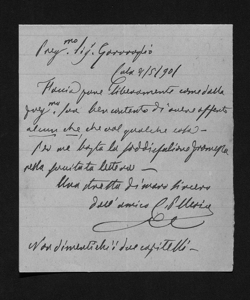 Preg.mo Sig. Gorrogio
Cola 4/5/901
Faccia pure liberamente come dalla
preg.ma sua ben contento di avere offerto
alcun che, che val qualche cosa -
Per me basta la soddisfazione promessa
nella pregiata lettera -
Una stretta di mano sincera
dall'amico
Non dimentichi i due capitelli -